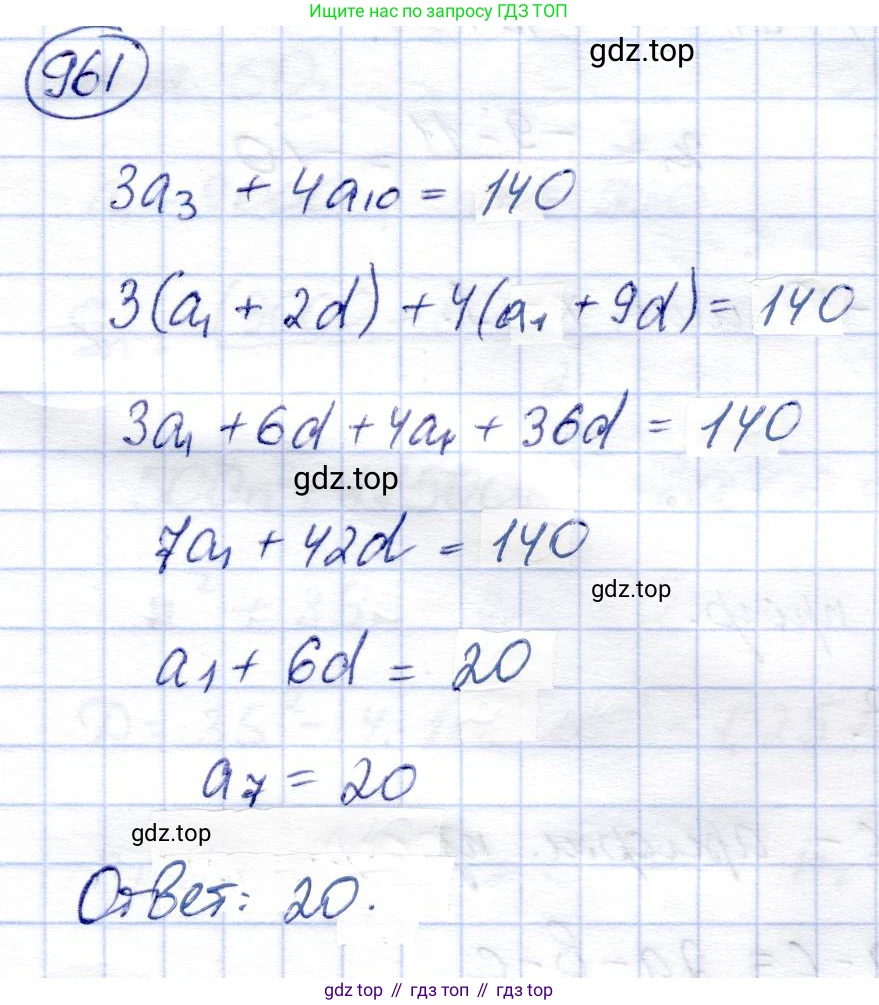 Ищите нас по запросу ГДЗ ТОП
961
gdz.top
3a₃ + 4a₁₀ = 140
3(a₁ + 2d) + 4(a₁ + 9d) = 140
3a₁ + 6d + 4a₁ + 36d = 140
gdz.top
7a₁ + 42d = 140
gdz.top
a₁ + 6d = 20
a₇ = 20
gdz.top
Ответ: 20.
gdz top // гдз топ // gdz top